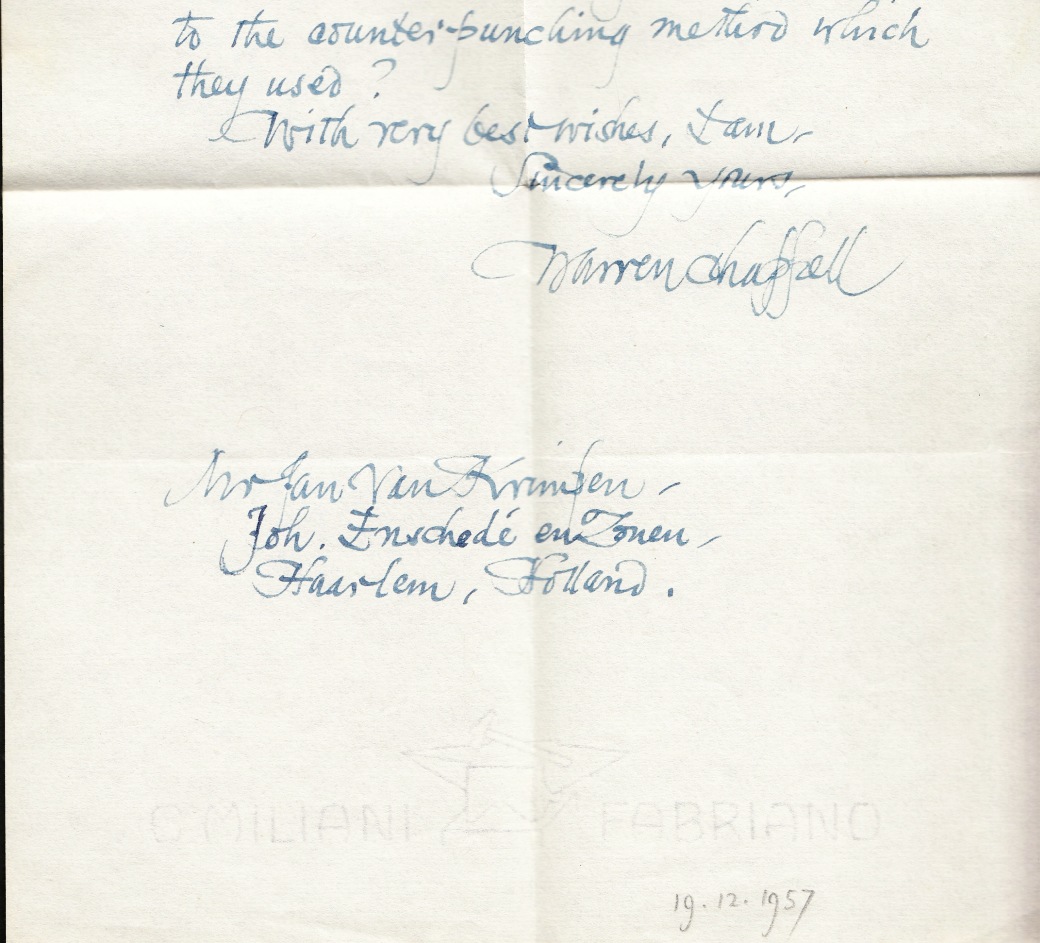 to the counter-punching method which
they used?
With very best wishes, I am,
Sincerely yours,
Warren Chappell
Mr Jan Van Krimpen -
Joh. Enschedé en Zonen,
Haarlem, Holland.
C. MILIANI FABRIANO
19.12.1957